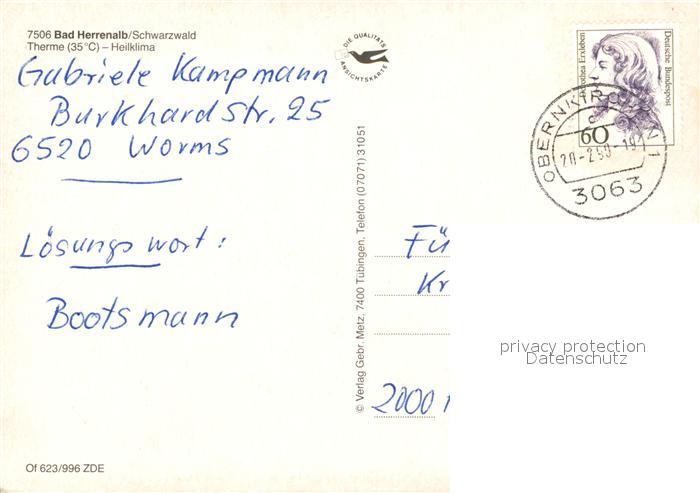 7506 Bad Herrenalb/Schwarzwald
Therme (35°C) – Heilklima
DIE QUALITÄTS
ANSICHTSKARTE
Gabriele Kampmann
Burkhardstr. 25
6520 Worms
Lösungswort:
Bootsmann
Of 623/996 ZDE
© Verlag Gebr. Metz, 7400 Tübingen, Telefon (07071) 31051
Dorothea Erxleben
Deutsche Bundespost
60
3063
Fü
Kr
2000
privacy protection
Datenschutz